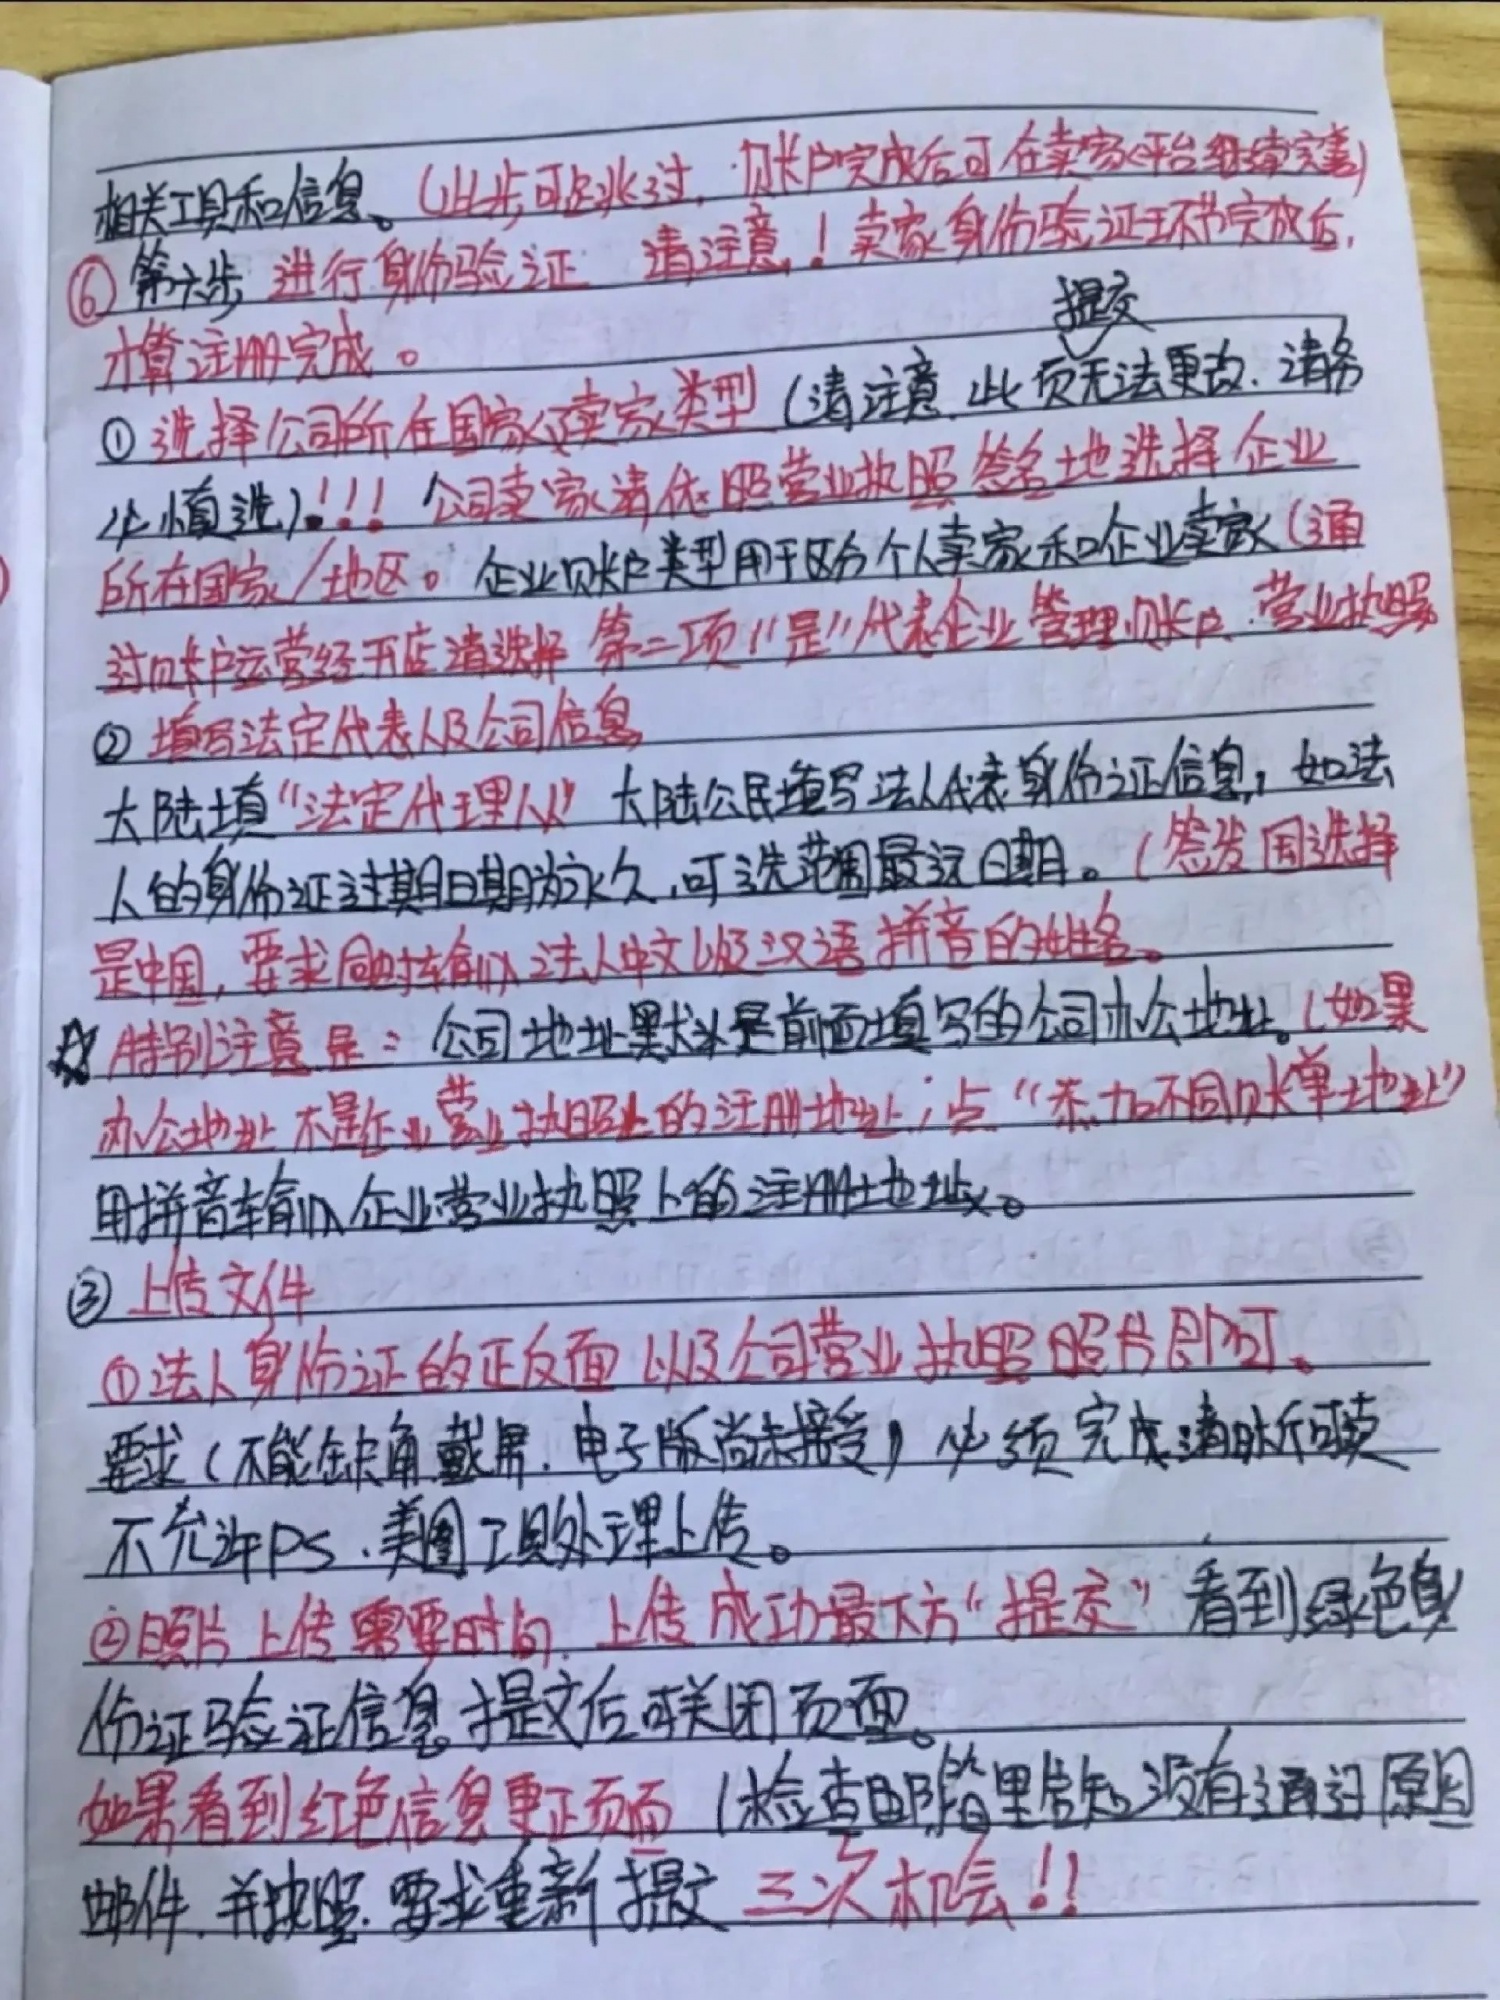 相关工具和信息。(此步可跳过，账户完成后可在卖家平台继续完善)
⑥第六步 进行身份验证 请注意！卖家身份验证环节完成后，
才算注册完成。
提交
①选择公司所在国家及卖家类型(请注意，此页无法更改，请务
必慎选)!!! 公司卖家请依照营业执照签名地选择企业
所在国家/地区。企业账户类型用于区分个人卖家和企业卖家(通
过账户运营经开店请选择 第二项"是"代表企业管理账户、营业执照
②填写法定代表人及公司信息
大陆填"法定代理人" 大陆公民填写法人代表身份证信息，如法
人的身份证过期日期为永久，可选范围最远日期。(签发国选择
是中国，要求同时输入法人中文以及汉语拼音的姓名。
☆特别注意是：公司地址默认是前面填写的公司办公地址。(如果
办公地址不是企业营业执照上的注册地址；点"添加不同账单地址"
用拼音输入企业营业执照上的注册地址。
③上传文件
①法人身份证的正反面以及公司营业执照照片即可。
要求(不能缺角、截屏、电子版尚未接受)必须完成清晰可读
不允许PS、美图工具处理上传。
②照片上传需要时间，上传成功最下方"提交"看到绿色身
份证验证信息提交后可关闭页面。
如果看到红色信息更正页面(检查邮箱里告知没有通过原因
邮件，并按照要求重新提交 三次机会!!